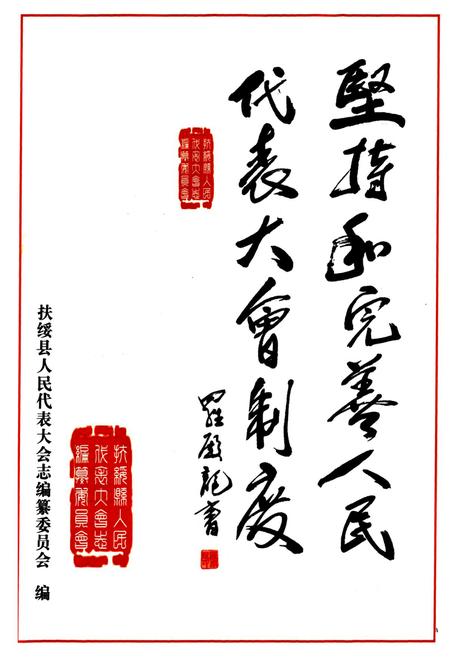 堅持和完善人民
代表大會制度
羅殿龍書
扶綏縣人民
代表大會志
編纂委員會
扶綏縣人民
代表大會志
編纂委員會
扶绥县人民代表大会志编纂委员会 编